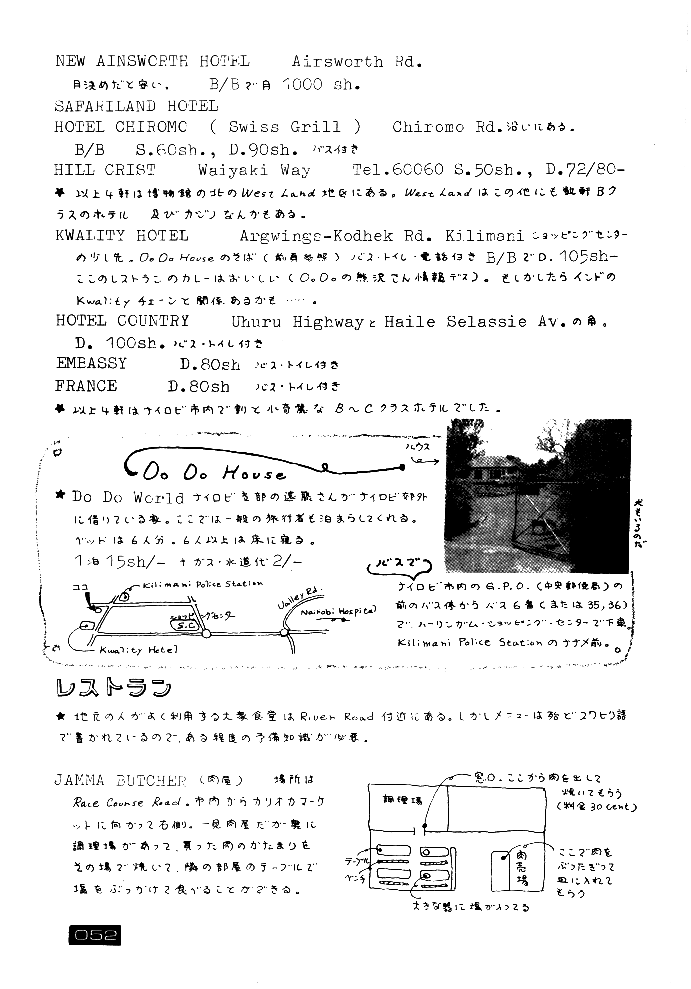 NEW AINSWORTH HOTEL Airsworth Rd.
月決めだと安い。 B/Bで月 1000 sh.
SAFARILAND HOTEL
HOTEL CHIROMO ( Swiss Grill ) Chiromo Rd.沿いにある。
B/B S.60sh., D.90sh. バス付き
HILL CRIST Waiyaki Way Tel.60060 S.50sh., D.72/80-
以上4軒は博物館の北のWest Land地区にある。West Landはこの他にも数軒Bク
ラスのホテル 及びカジノなんかもある。
KWALITY HOTEL Argwings-Kodhek Rd. Kilimani ショッピングセンター
の少し先。Do Do Houseのそば(前頁参照) バス・トイレ・電話付き B/BでD. 105sh-
ここのレストランのカレーはおいしい(DoDoの熊沢さん情報デス)。もしかしたらインドの
Kwalityチェーンと関係あるかも……。
HOTEL COUNTRY Uhuru Highwayと Haile Selassie Av.の角。
D. 100sh. バス・トイレ付き
EMBASSY D.80sh バス・トイレ付き
FRANCE D.80sh バス・トイレ付き
以上4軒はナイロビ市内で割と小奇麗な B〜Cクラスホテルでした。
Do Do House
ハウス
★ Do Do World ナイロビ支部の遠藤さんがナイロビ郊外
に借りている家。ここでは一般の旅行者も泊まらしてくれる。
ベッドは6人分。6人以上は床に寝る。
1泊 15sh/- + ガス・水道代 2/-
ココ
Kilimani Police Station
Valley Rd.
Nairobi Hospital
S.C.
Kwality Hotel
バスで
ナイロビ市内の G.P.O.(中央郵便局)の
前のバス停から バス6番(または35,36)
で、ハーリンガム・ショッピング・センターで下車。
Kilimani Police Stationのナナメ前。
レストラン
★ 地元の人がよく利用する大衆食堂は River Road 付近にある。しかしメニューは殆どスワヒリ語
で書かれているので、ある程度の予備知識が必要。
JAMMA BUTCHER (肉屋) 場所は
Race Course Road。市内からカリオカマーケ
ットに向かって右側。一見肉屋だが奥に
調理場があって、買った肉のかたまりを
その場で焼いて、隣の部屋のテーブルで
塩をぶっかけて食べることができる。
調理場
窓口。ここから肉を出して
焼いてもらう
(料金 30 cent)
テーブル
ベンチ
肉売場
ここで肉を
ぶったぎって
皿に入れて
もらう
大きな器に塩が入ってる
052